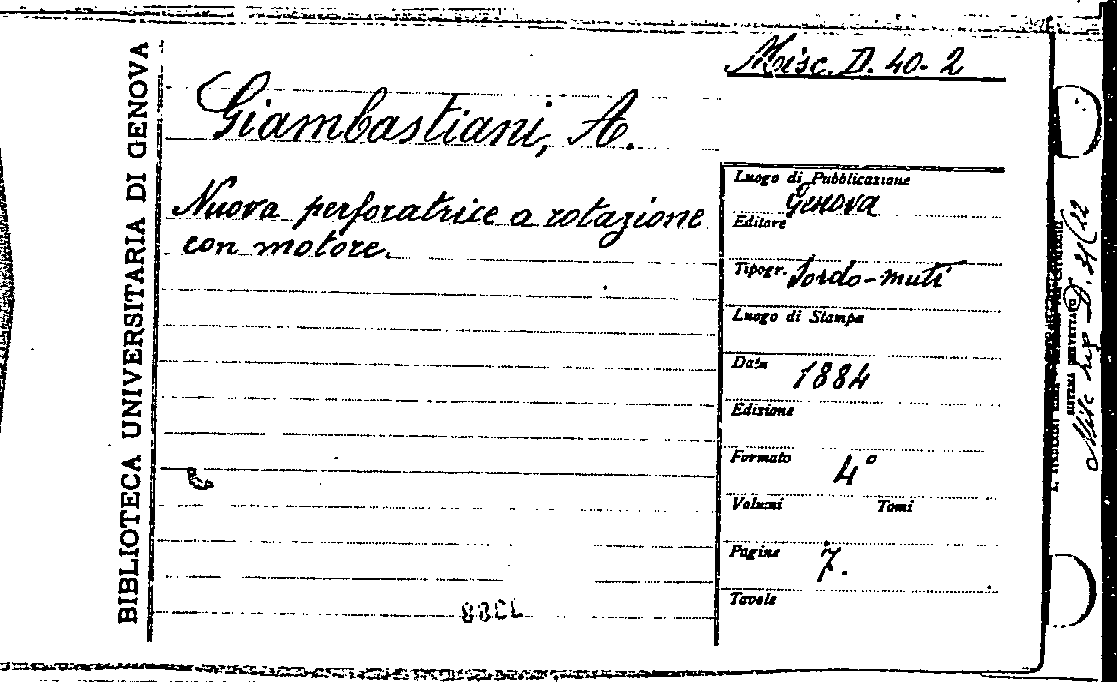 Misc. D. 40. 2
BIBLIOTECA UNIVERSITARIA DI GENOVA
Giambastiani, A.
Nuova perforatrice a rotazione
con motore.
Luogo di Pubblicazione
Genova
Editore
Tipogr. Sordo-muti
Luogo di Stampa
Data 1884
Edizione
Formato 4°
Volumi Tomi
Pagine 7.
Tavole